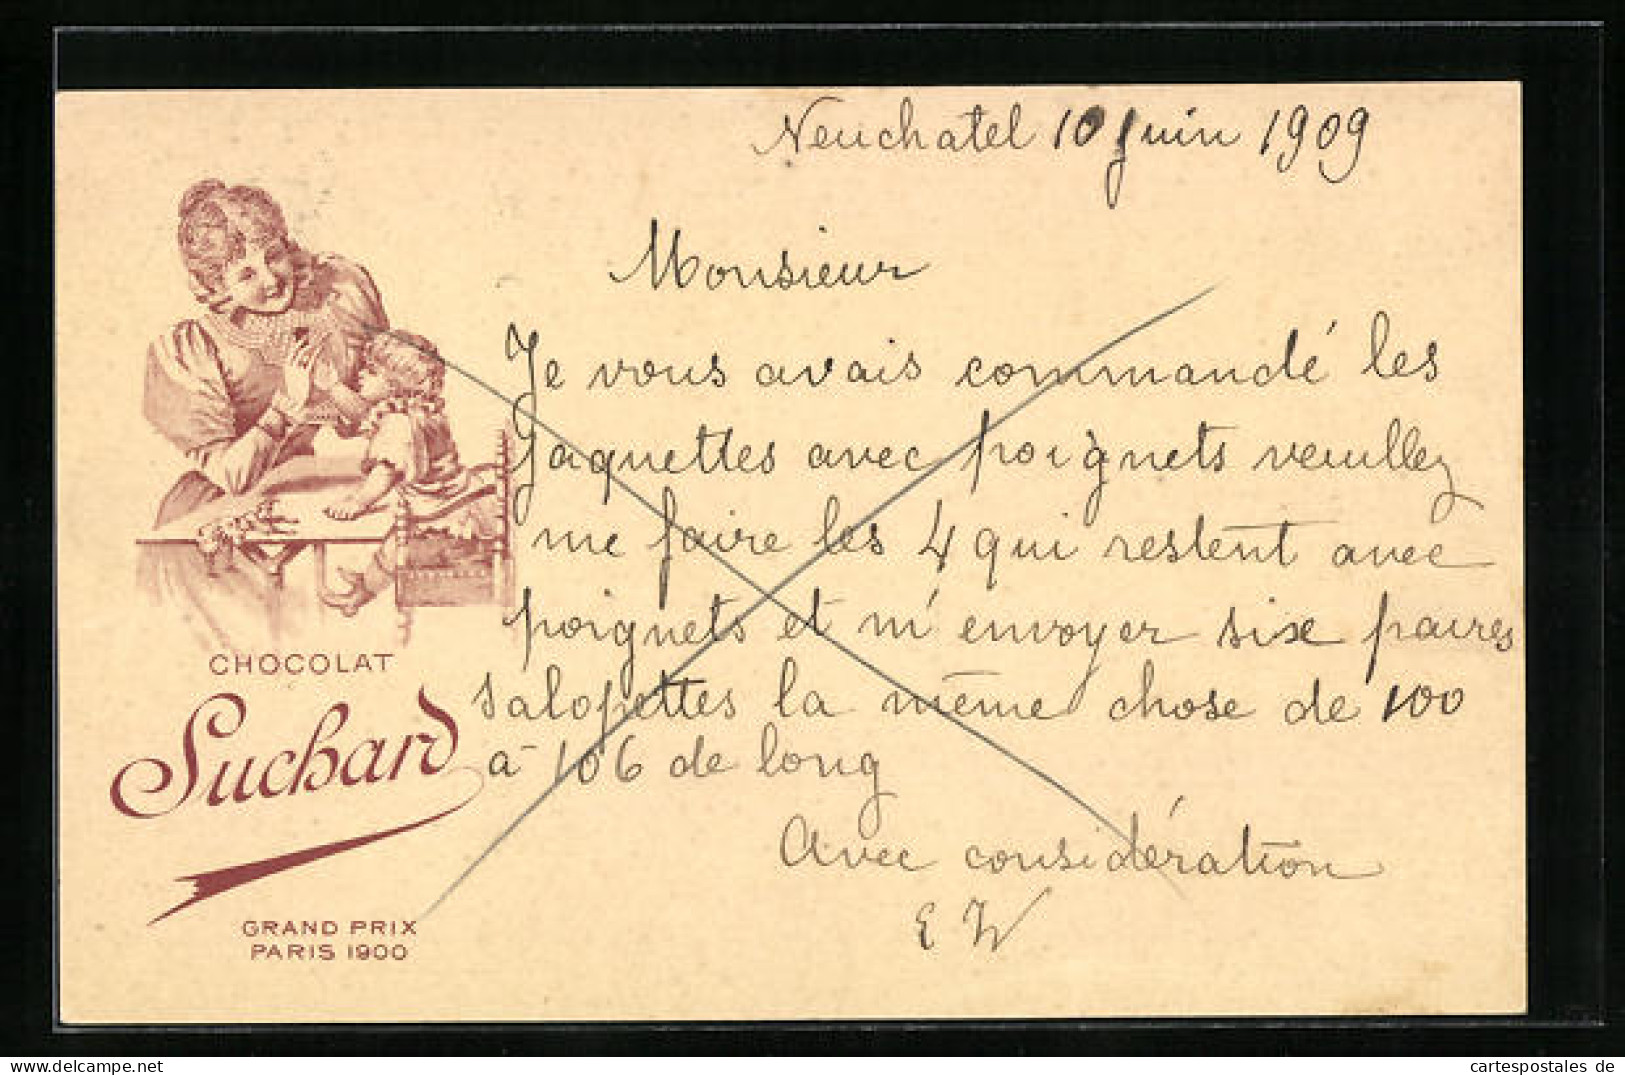 Neuchatel 10 Juin 1909
Monsieur
Je vous avais commandé les
Jaquettes avec poignets veuillez
me faire les 4 qui restent avec
poignets et m'envoyer six paires
salopettes la même chose de 100
à 106 de long
Avec considération
E W
CHOCOLAT
Suchard
GRAND PRIX
PARIS 1900
cartespostales de